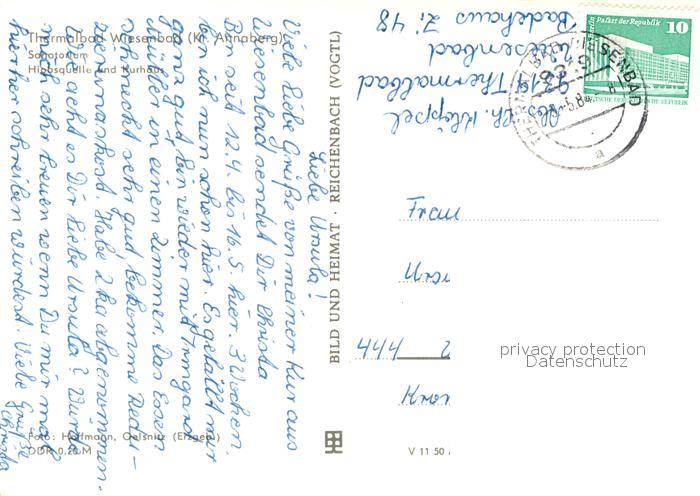 Thermalbad Wiesenbad (Kr. Annaberg)
Sanatorium
Hiobsquelle und Kurhaus
Liebe Ursula!
Viele liebe Grüße von meiner Kur aus
Wiesenbad sendet Dir Christa
Bin seit 12.4. bis 16.5. hier. 3 Wochen
bin ich nun schon hier. Es gefällt mir
ganz gut bin wieder mit Irmgard
Müller in einem Zimmer. Das Essen
schmeckt sehr gut bekomme Redu-
zierungskost. Habe 2 kg abgenommen.
Wie geht es Dir liebe Ursula? Würde
mich sehr freuen wenn Du mir mal
hierher schreiben würdest. Viele Grüße
Christa
Foto: Hoffmann, Oelsnitz (Erzgeb.)
DDR 0,20 M
BILD UND HEIMAT · REICHENBACH (VOGTL)
V 11 50
Abs. Ch. Klöppel
9319 Thermalbad
Wiesenbad
Badehaus Zi. 48
THERMALBAD WIESENBAD
9319
a
Palast der Republik
10
Berlin
DEUTSCHE DEMOKRATISCHE REPUBLIK
Frau
444
privacy protection
Datenschutz